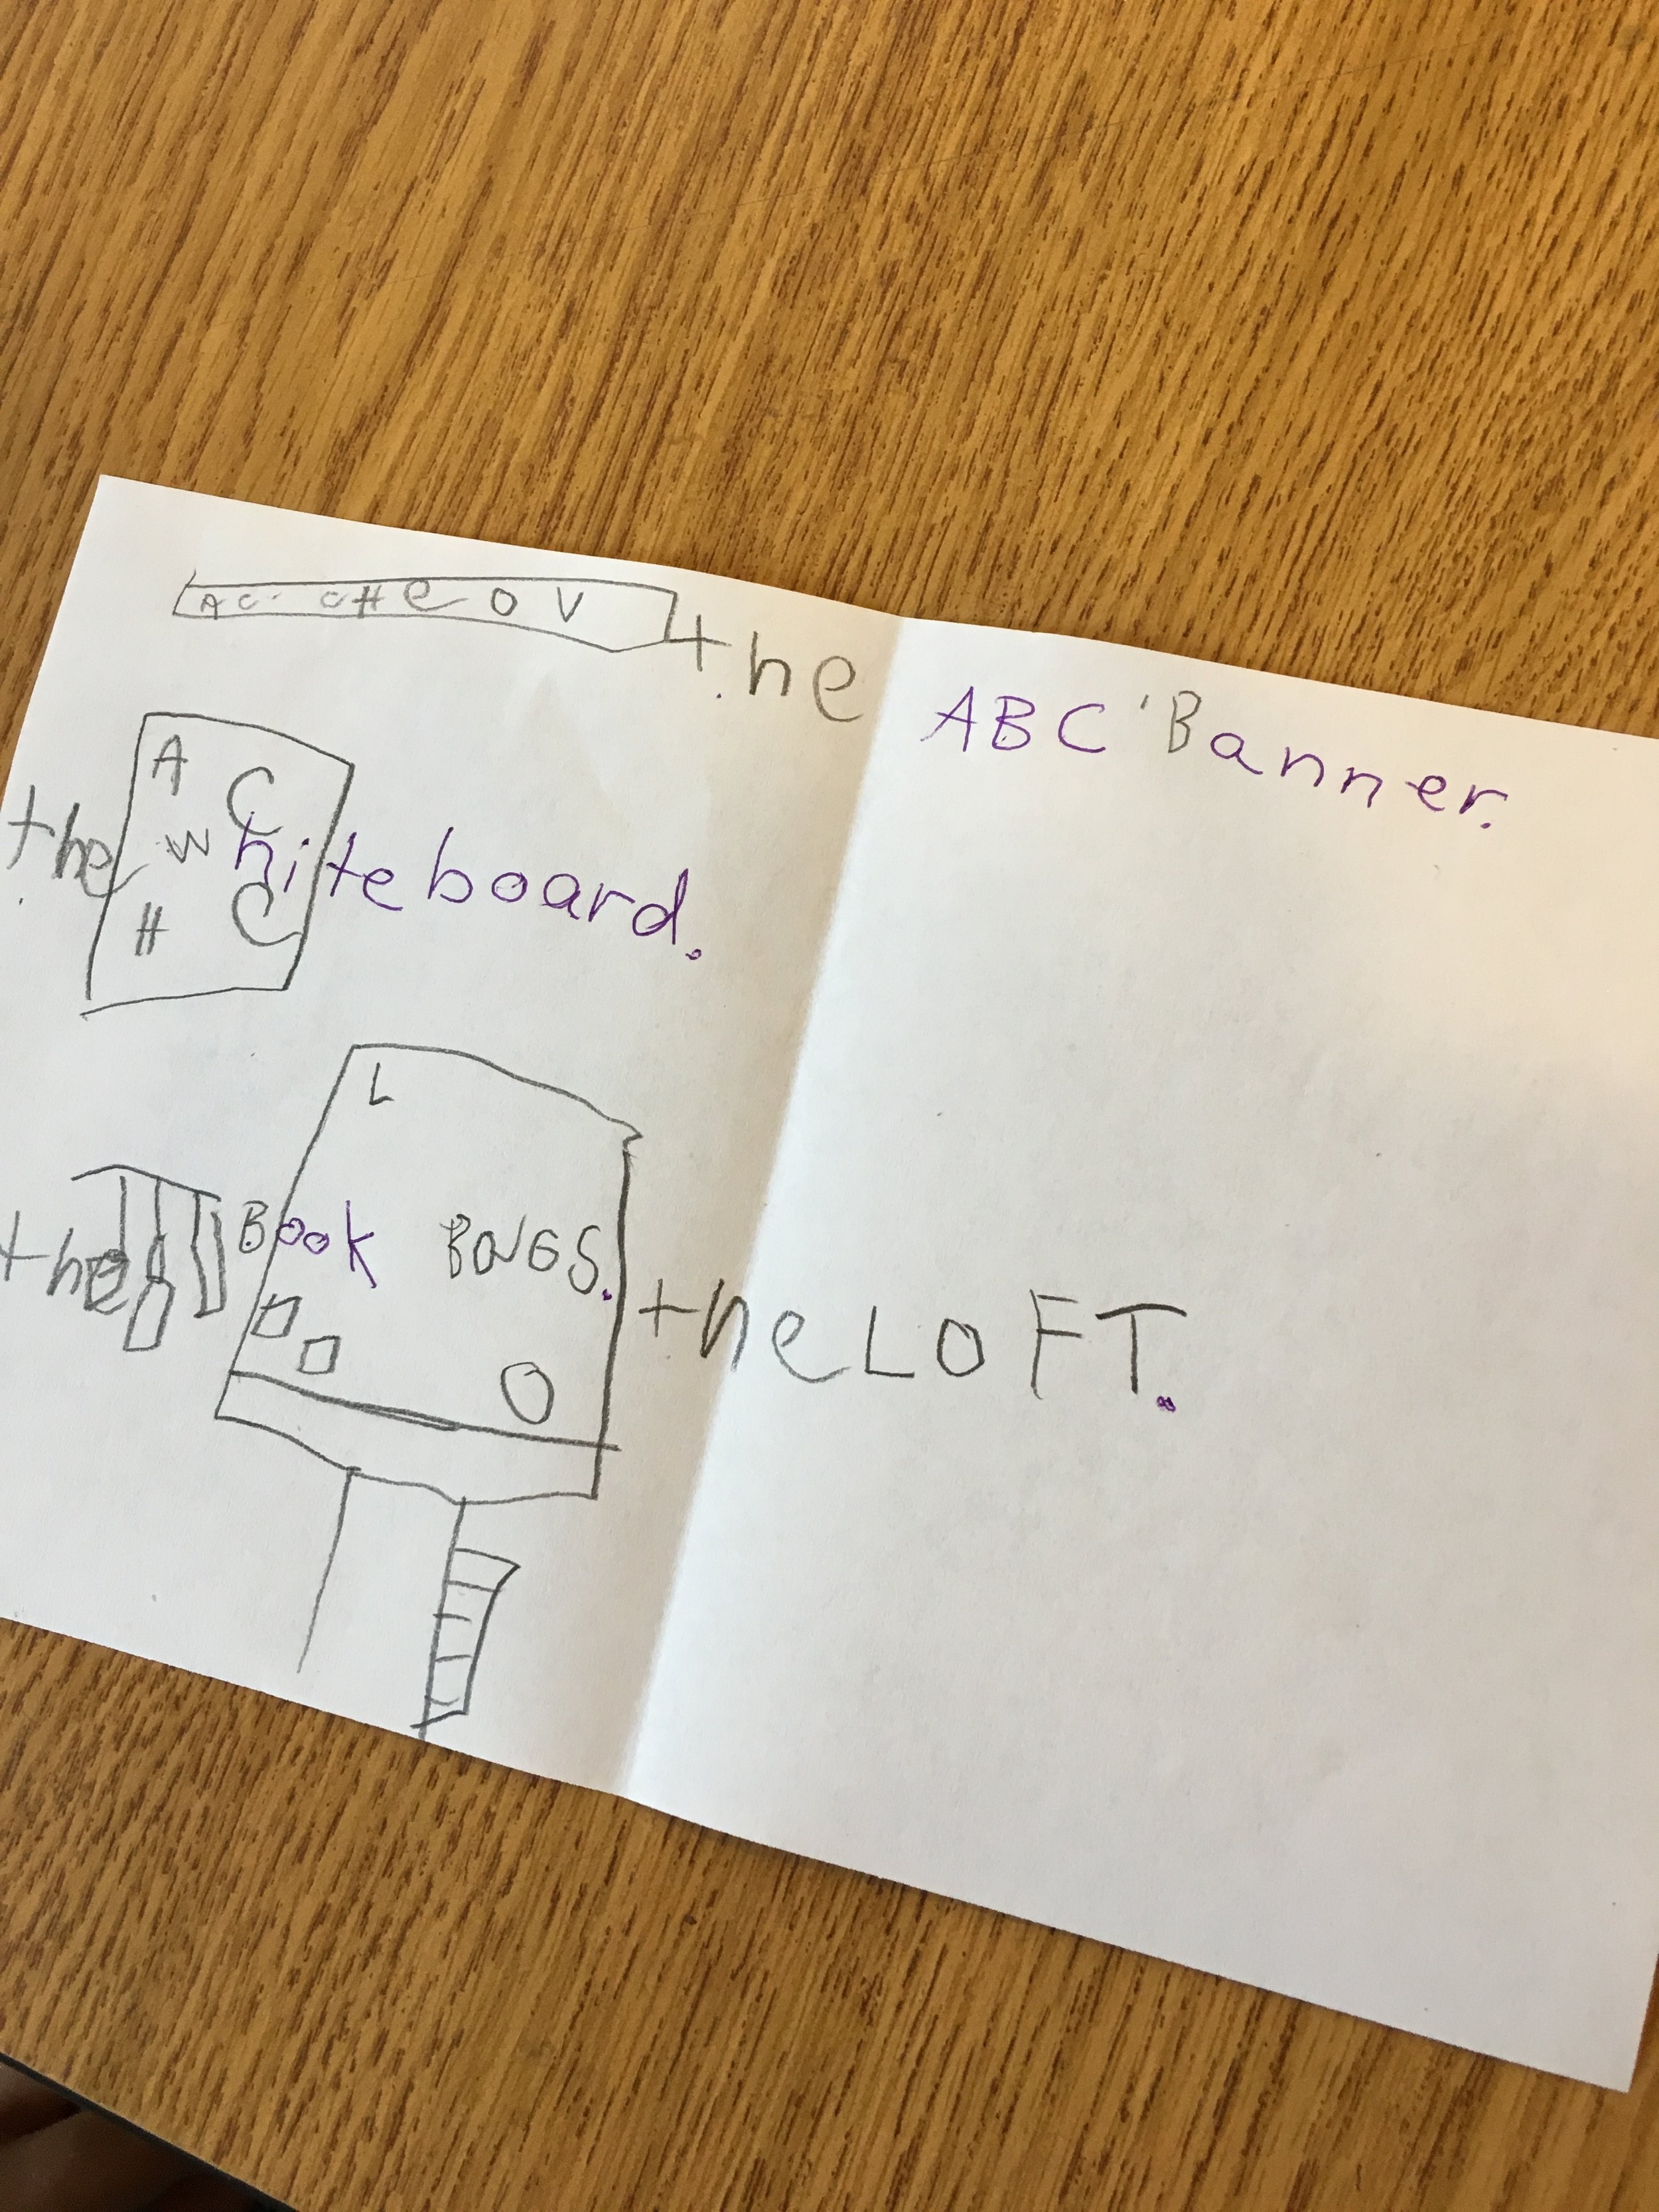 A C C H e O V
the ABC Banner.
A C
the Whiteboard.
H C
L
the Book BaGS.
the LOFT.